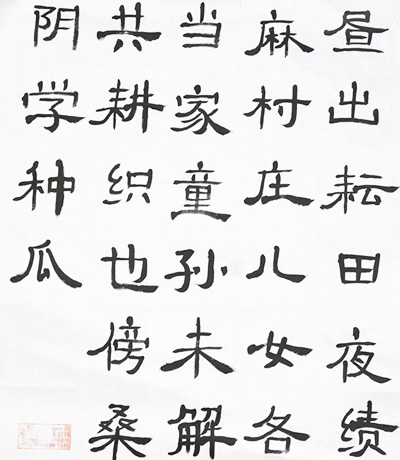 昼出耘田夜绩
麻村庄儿女各
当家童孙未解
共耕织也傍桑
阴学种瓜